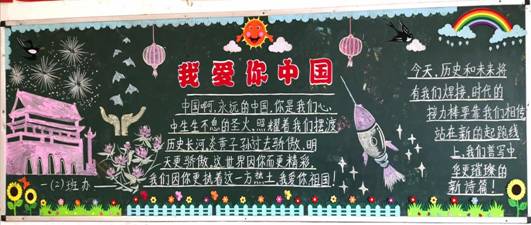 我爱你中国
中国啊,永远的中国,你是我们心
中生生不息的圣火,照耀着我们摆渡
历史长河,炎黄子孙过去骄傲,明
天更骄傲,这世界因你而更精彩,
我们因你更执着这一方热土,我爱你祖国!
一(2)班办
今天,历史和未来将
有我们焊接,时代的
接力棒要靠我们相传
站在新的起跑线
上,我们普写中
华更璀璨的
新诗篇!